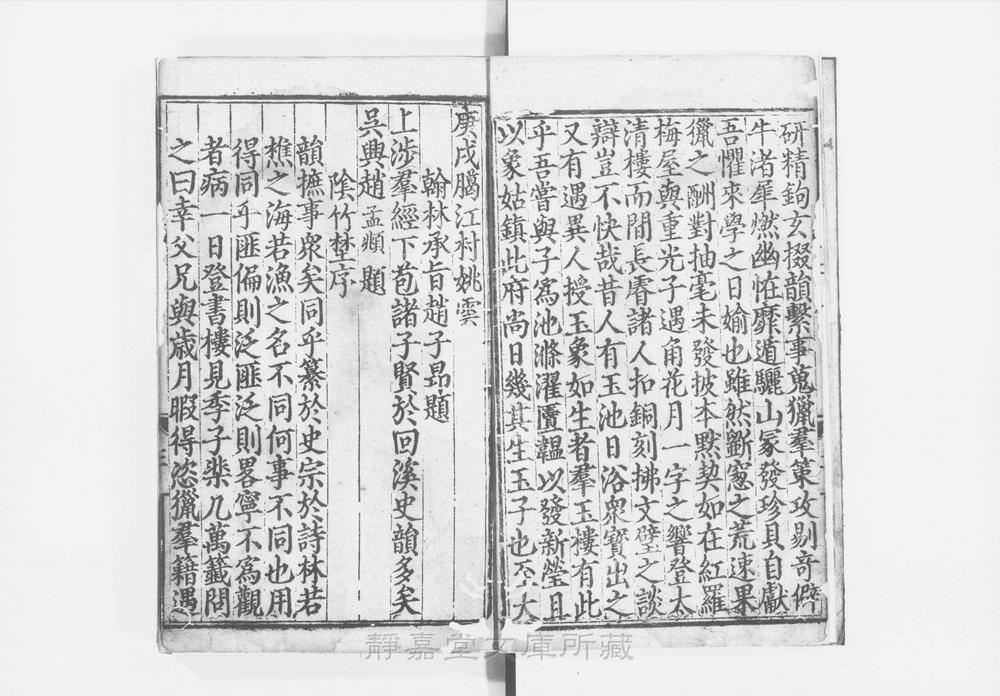 研精鉤玄掇韻繫事蒐獵羣策攻剔竒僻
牛渚犀燃幽恠靡遁驪山冢發珍具自獻
吾懼來學之日媮也雖然斷窻之荒速果
獵之酬對抽毫未發披本黙契如在紅羅
梅屋與重光子遇角花月一字之響登太
清樓而閒長睿諸人扣銅刻拂文壁之談
辯豈不快哉昔人有玉池日浴衆寳出之
又有遇異人授玉象如生者羣玉樓有此
乎吾嘗與子爲池滌濯匵韞以發新瑩且
以象姑鎮此府尚日幾其生玉子也不大
庚戌臈江村姚雲
翰林承旨趙子昂題
上渉羣經下苞諸子賢於回溪史韻多矣
吳興趙孟頫題
隂竹埜序
韻摭事衆矣同乎纂於史宗於詩林若
樵之海若漁之名不同何事不同也用
得同乎匪偏則泛匪泛則畧寧不爲觀
者病一日登書樓見季子棐几萬籤問
之曰幸父兄與歳月暇得恣獵羣籍遇
靜嘉堂文庫所藏